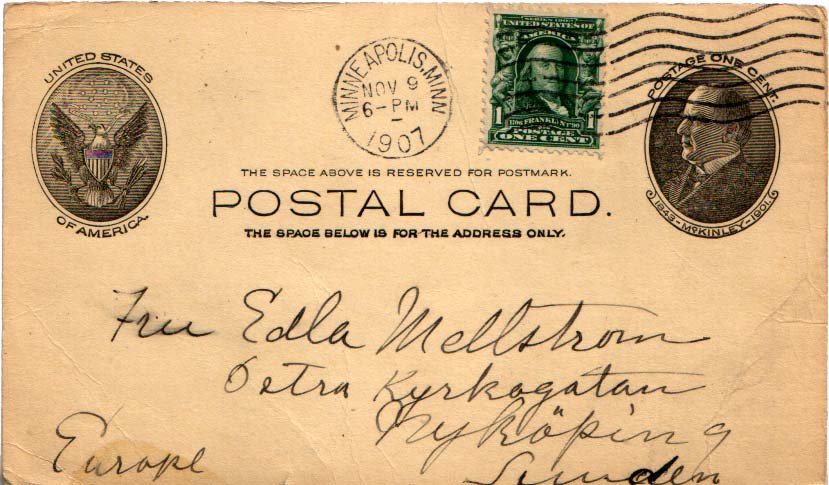 UNITED STATES
OF AMERICA.
MINNEAPOLIS, MINN
NOV 9
6-PM
1907
SERIES 1902
UNITED STATES OF
AMERICA
1 1706 FRANKLIN 1790 1
POSTAGE
ONE CENT
POSTAGE ONE CENT.
1843-McKINLEY-1901.
THE SPACE ABOVE IS RESERVED FOR POSTMARK.
POSTAL CARD.
THE SPACE BELOW IS FOR THE ADDRESS ONLY.
Fru Edla Mellstrom
Östra Kyrkogatan
Nyköping
Europe
Sweden